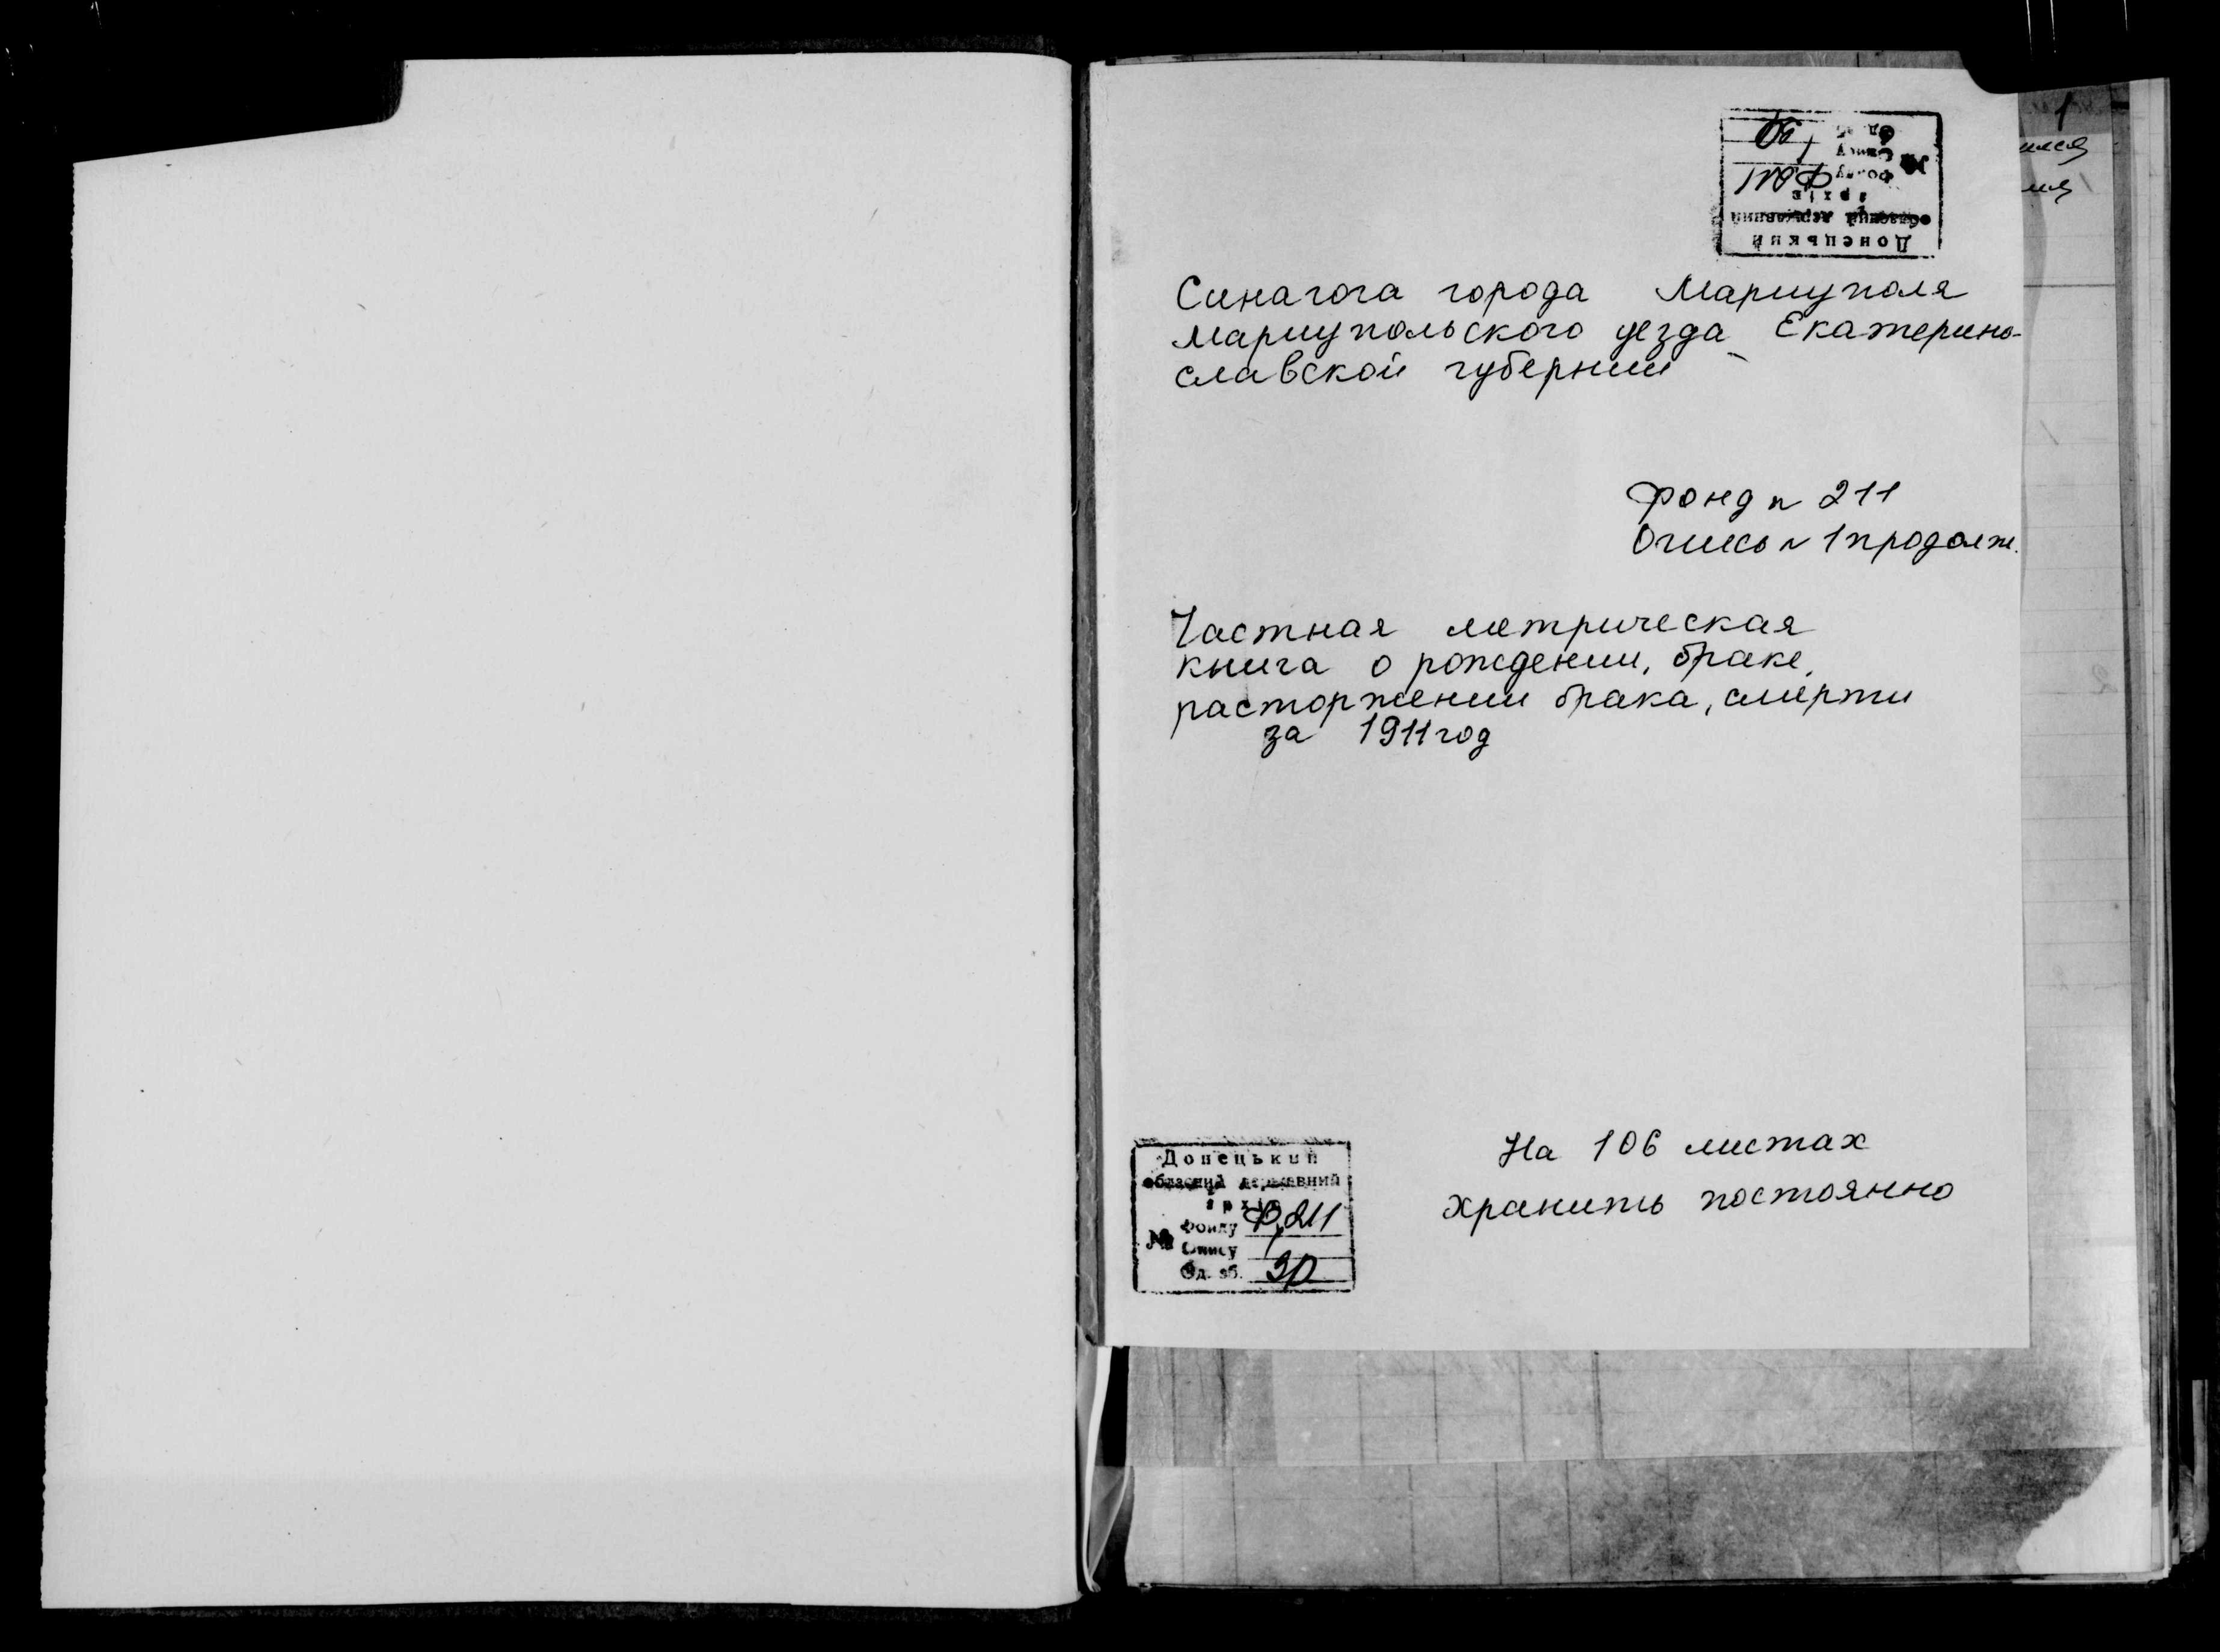 Донецький
обласний державний
архів
№ Фонду Ф.211
Опису 1
Од. зб. 30
Синагога города Мариуполя
Мариупольского уезда Екатерино-
славской губернии
Фонд № 211
Опись № 1 продолж.
Частная метрическая
книга о рождении, браке,
расторжении брака, смерти
за 1911 год
На 106 листах
Хранить постоянно
Донецький
обласний державний
архів
№ Фонду Ф.211
Опису 1
Од. зб. 30
1